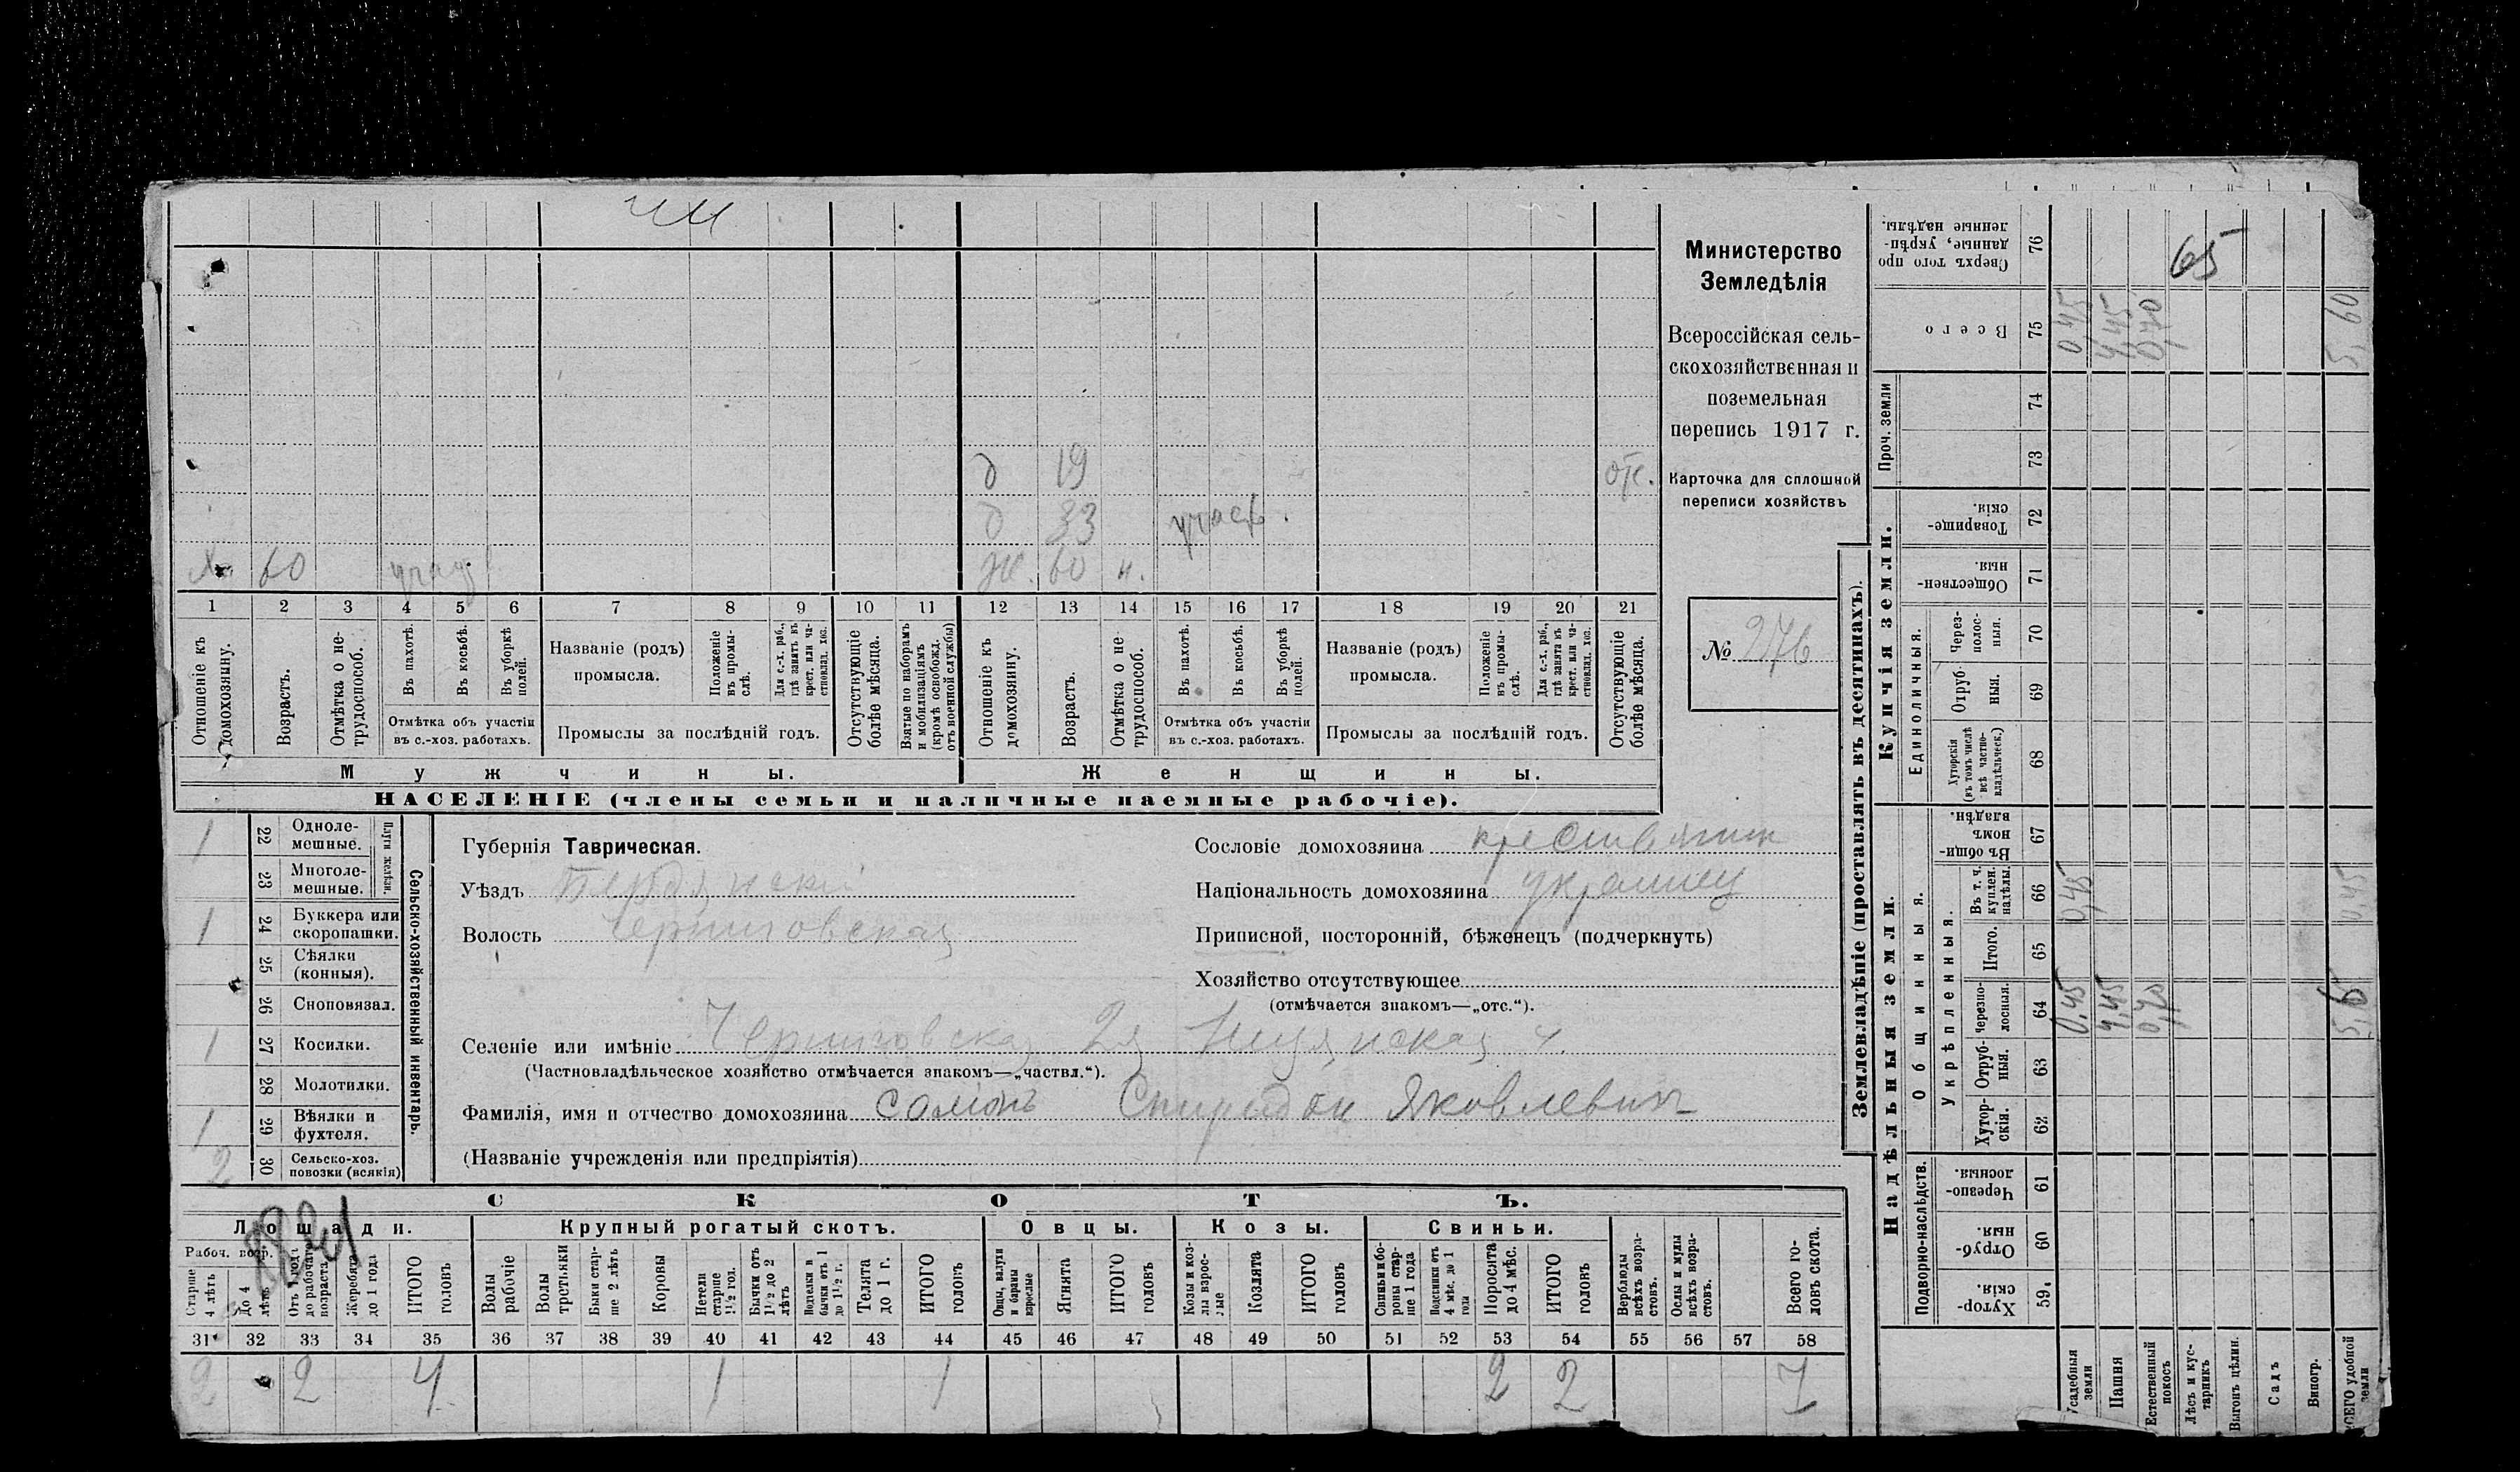 Министерство
Земледѣлія
Всероссійская сель-
скохозяйственная и
поземельная
перепись 1917 г.
Карточка для сплошной
переписи хозяйствъ
№ 276
д 19 отс.
д 33 участ.
Хз 60 участ Ж. 60 н.
1 2 3 4 5 6 7 8 9 10 11 12 13 14 15 16 17 18 19 20 21
Отношеніе къ домохозяину.
Возрастъ.
Отмѣтка о не-трудоспособ.
Въ пахотѣ.
Въ косьбѣ.
Въ уборкѣ полей.
Отмѣтка объ участіи
въ с.-хоз. работахъ.
Названіе (родъ)
промысла.
Положеніе въ промы-слѣ.
Для с.-х. раб., гдѣ занятъ въ крест. или ча-стновлад. хоз.
Промыслы за послѣдній годъ.
Отсутствующіе болѣе мѣсяца.
Взятые по наборамъ и мобилизаціямъ (кромѣ освобожд. отъ военной службы)
Отношеніе къ домохозяину.
Возрастъ.
Отмѣтка о не-трудоспособ.
Въ пахотѣ.
Въ косьбѣ.
Въ уборкѣ полей.
Отмѣтка объ участіи
въ с.-хоз. работахъ.
Названіе (родъ)
промысла.
Положеніе въ промы-слѣ.
Для с.-х. раб., гдѣ занята въ крест. или ча-стновлад. хоз.
Промыслы за послѣдній годъ.
Отсутствующіе болѣе мѣсяца.
Мужчины. Женщины.
НАСЕЛЕНІЕ (члены семьи и наличные наемные рабочіе).
1 22 Одноле-мешные.
23 Многоле-мешные.
Плуги желѣзн.
1 24 Буккера или скоропашки.
25 Сѣялки (конныя).
26 Сноповязал.
1 27 Косилки.
28 Молотилки.
1 29 Вѣялки и фухтеля.
2 30 Сельско-хоз. повозки (всякія)
Сельско-хозяйственный инвентарь.
Губернія Таврическая.
Уѣздъ Бердянскій
Волость Черниговская
Сословіе домохозяина крестьянин
Національность домохозяина украинец
Приписной, посторонній, бѣженецъ (подчеркнуть)
Хозяйство отсутствующее
(отмѣчается знакомъ—„отс.“).
Селеніе или имѣніе Черниговская 2я
(Частновладѣльческое хозяйство отмѣчается знакомъ—„частвл.“).
Фамилія, имя и отчество домохозяина Спиридон Яковлевич
(Названіе учрежденія или предпріятія)
СКОТЪ.
Лошади. Крупный рогатый скотъ. Овцы. Козы. Свиньи.
Рабоч. возр.
Старше 4 лѣтъ
До 4 лѣтъ
Отъ 1 года до рабочаго возраста
Жеребята до 1 года
ИТОГО головъ
Волы рабочіе
Волы третьяки
Быки стар-ше 2 лѣтъ
Коровы
Нетели старше 1½ год.
Бычки отъ 1½ до 2 лѣтъ
Подтелки и бычки отъ 1 до 1½ г.
Телята до 1 г.
ИТОГО головъ
Овцы, валухи и бараны взрослые
Ягнята
ИТОГО головъ
Козы и коз-лы взрос-лые
Козлята
ИТОГО головъ
Свиньи и бо-ровы стар-ше 1 года
Подсвинки отъ 4 мѣс. до 1 года
Поросята до 4 мѣс.
ИТОГО головъ
Верблюды всѣхъ возра-стовъ.
Ослы и мулы всѣхъ возра-стовъ.
Всего го-ловъ скота.
31 32 33 34 35 36 37 38 39 40 41 42 43 44 45 46 47 48 49 50 51 52 53 54 55 56 57 58
2 2 4 1 1 2 2 7
Землевладѣніе (проставлять въ десятинахъ).
Сверхъ того про-данные, укрѣп-ленные надѣлы. 76 65
Всего 75 0,45 4,45 0,70 5,60
Проч. земли
74
73
Купчія земли.
Товарище-скія. 72
Обществен-ныя. 71
Единоличныя.
Через-полос-ныя. 70
Отруб-ныя. 69
Хуторскія (въ томъ числѣ всѣ частно-владѣльческ.) 68
Надѣльныя земли.
Общинныя.
Въ общи-номъ владѣн. 67
Укрѣпленныя.
Въ т. ч. куплен. надѣлы. 66 0,45 0,45
Итого. 65
Черезпо-лосныя. 64 0,45 4,45 0,70
Отруб-ныя. 63
Хутор-скія. 62
Подворно-наслѣдств.
Черезпо-лосныя. 61
Отруб-ныя. 60
Хутор-скія. 59
Усадебныя земли
Пашня
Естественный покосъ
Лѣсъ и кус-тарникъ
Выгонъ цѣлин.
Садъ
Виногр.
ВСЕГО удобной земли